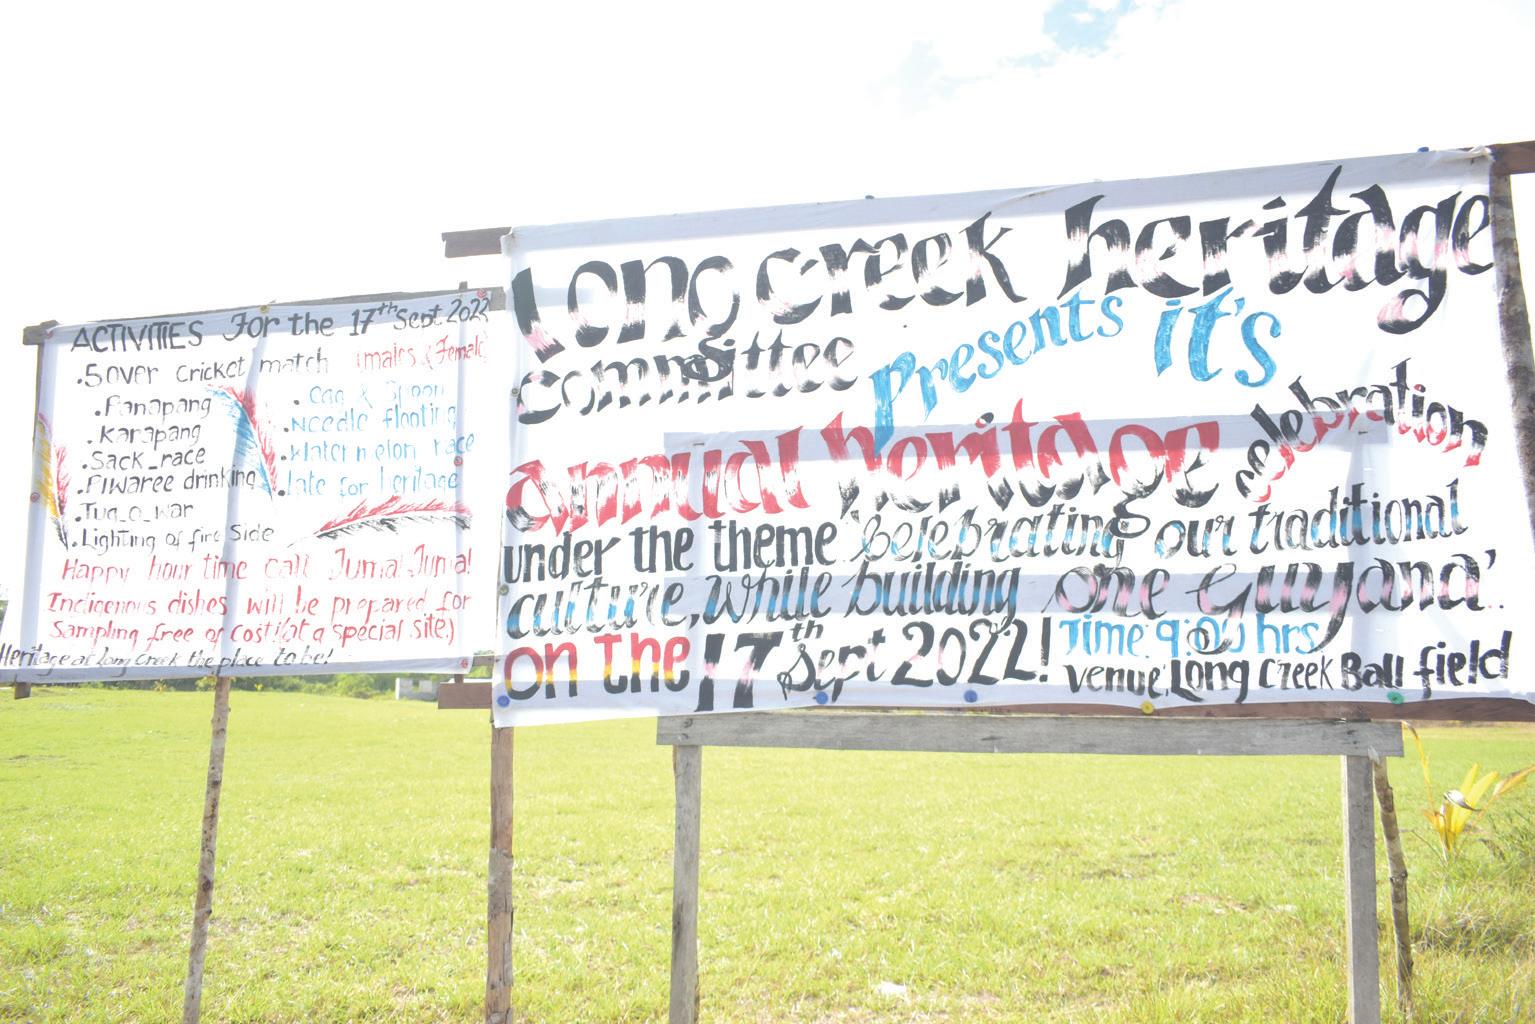 ACTIVITIES For the 17th Sept 2022
.5 over cricket match (males & Female)
.Panapang
.Karapang
.Sack_race
.Piwaree drinking
.Tug_o_war
.Lighting of fire Side
. Egg & Spoon
.Needle floating
.Water melon race
.late for heritage
Happy hour time call Juma! Juma!
Indigenous dishes will be prepared for
Sampling free of cost! (at a special site)
Heritage at Long Creek the place to be!
Long creek heritage
committee presents it's
annual heritage celebration
under the theme celebrating our traditional
culture, while building one Guyana'.
on the 17th Sept 2022!
Time: 9:00 hrs
venue: Long Creek Ball field